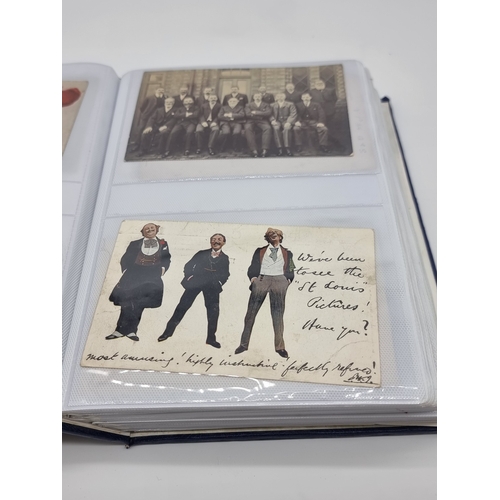 We've been
to see the
"St Louis"
Pictures!
Have you?
most amusing! highly instructive - perfectly refined!